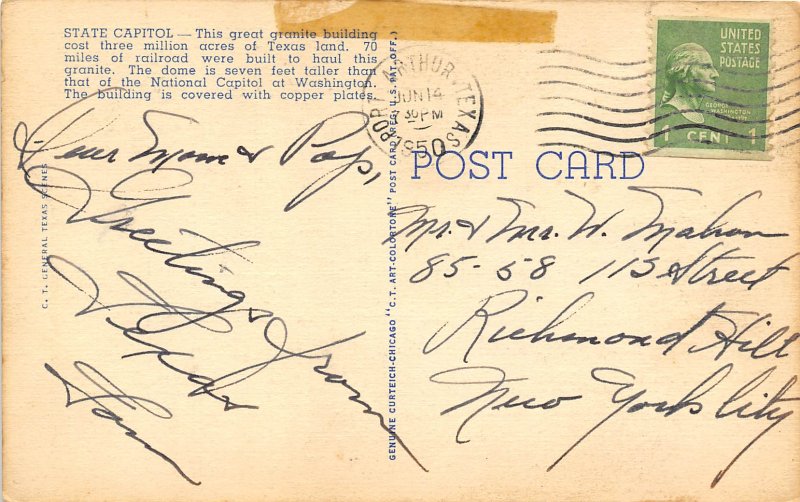 STATE CAPITOL — This great granite building
cost three million acres of Texas land. 70
miles of railroad were built to haul this
granite. The dome is seven feet taller than
that of the National Capitol at Washington.
The building is covered with copper plates.
C. T. GENERAL TEXAS SCENES
Dear Mom & Pop,
Greetings from
Texas
Tom
GENUINE CURTEICH-CHICAGO "C. T. ART-COLORTONE" POST CARD (REG. U. S. PAT. OFF.)
PORT ARTHUR, TEXAS
JUN 14
30 PM
1950
UNITED
STATES
POSTAGE
GEORGE
WASHINGTON
1 CENT 1
POST CARD
Mr. & Mrs. W. Mahon
85-58 115 Street
Richmond Hill
New York City